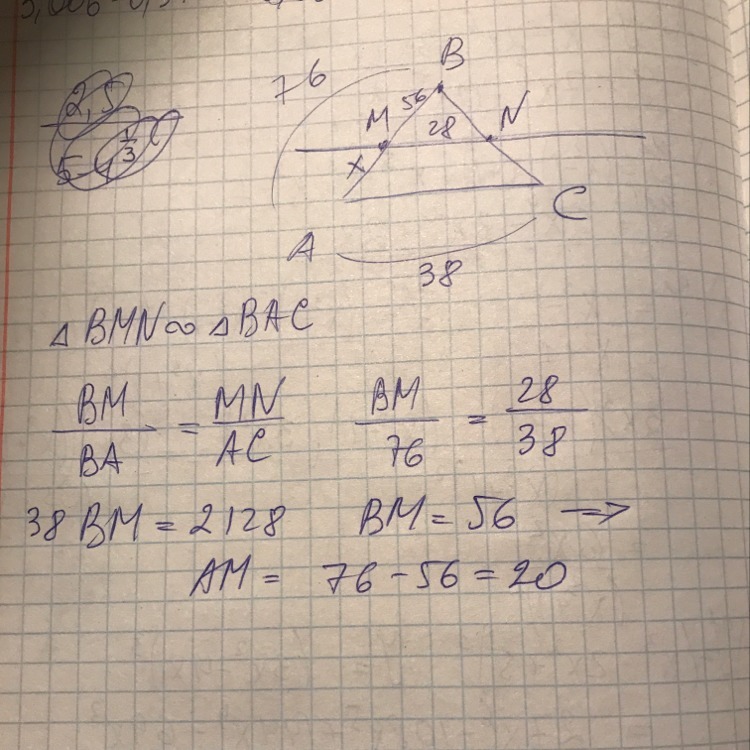 2,5
5 - 1 1/3
76
B
56
M
28
N
x
A
C
38
△ BMN ∞ △ BAC
BM/BA = MN/AC BM/76 = 28/38
38 BM = 2128 BM = 56 →
AM = 76 - 56 = 20